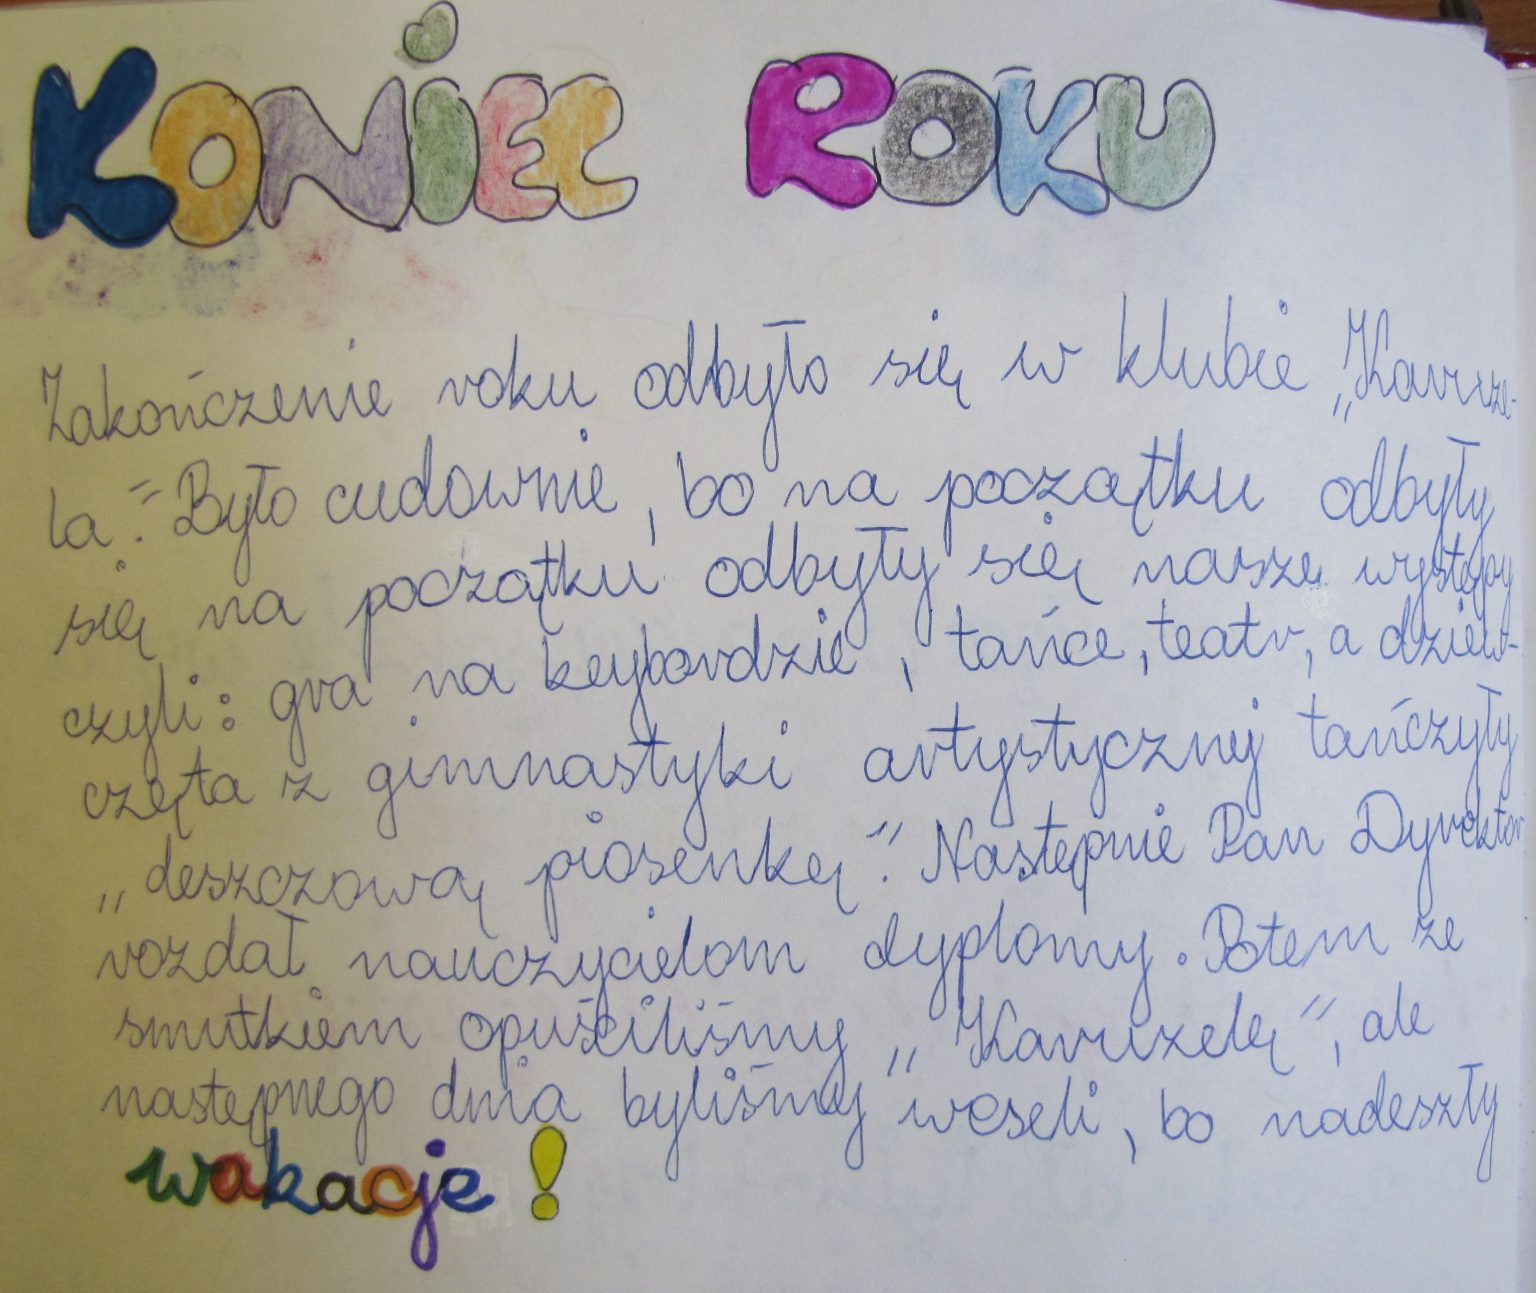 KONiEC ROKU
Zakończenie roku odbyło się w klubie „Karuze-
la." Było cudownie, bo na początku odbyły
się na początku odbyły się nasze występy
czyli: gra na keybordzie, tańce, teatr, a dziew-
częta z gimnastyki artystycznej tańczyły
„deszczową piosenkę". Następnie Pan Dyrektor
rozdał nauczycielom dyplomy. Potem ze
smutkiem opuściliśmy „Karuzelę", ale
następnego dnia byliśmy weseli, bo nadeszły
wakacje!